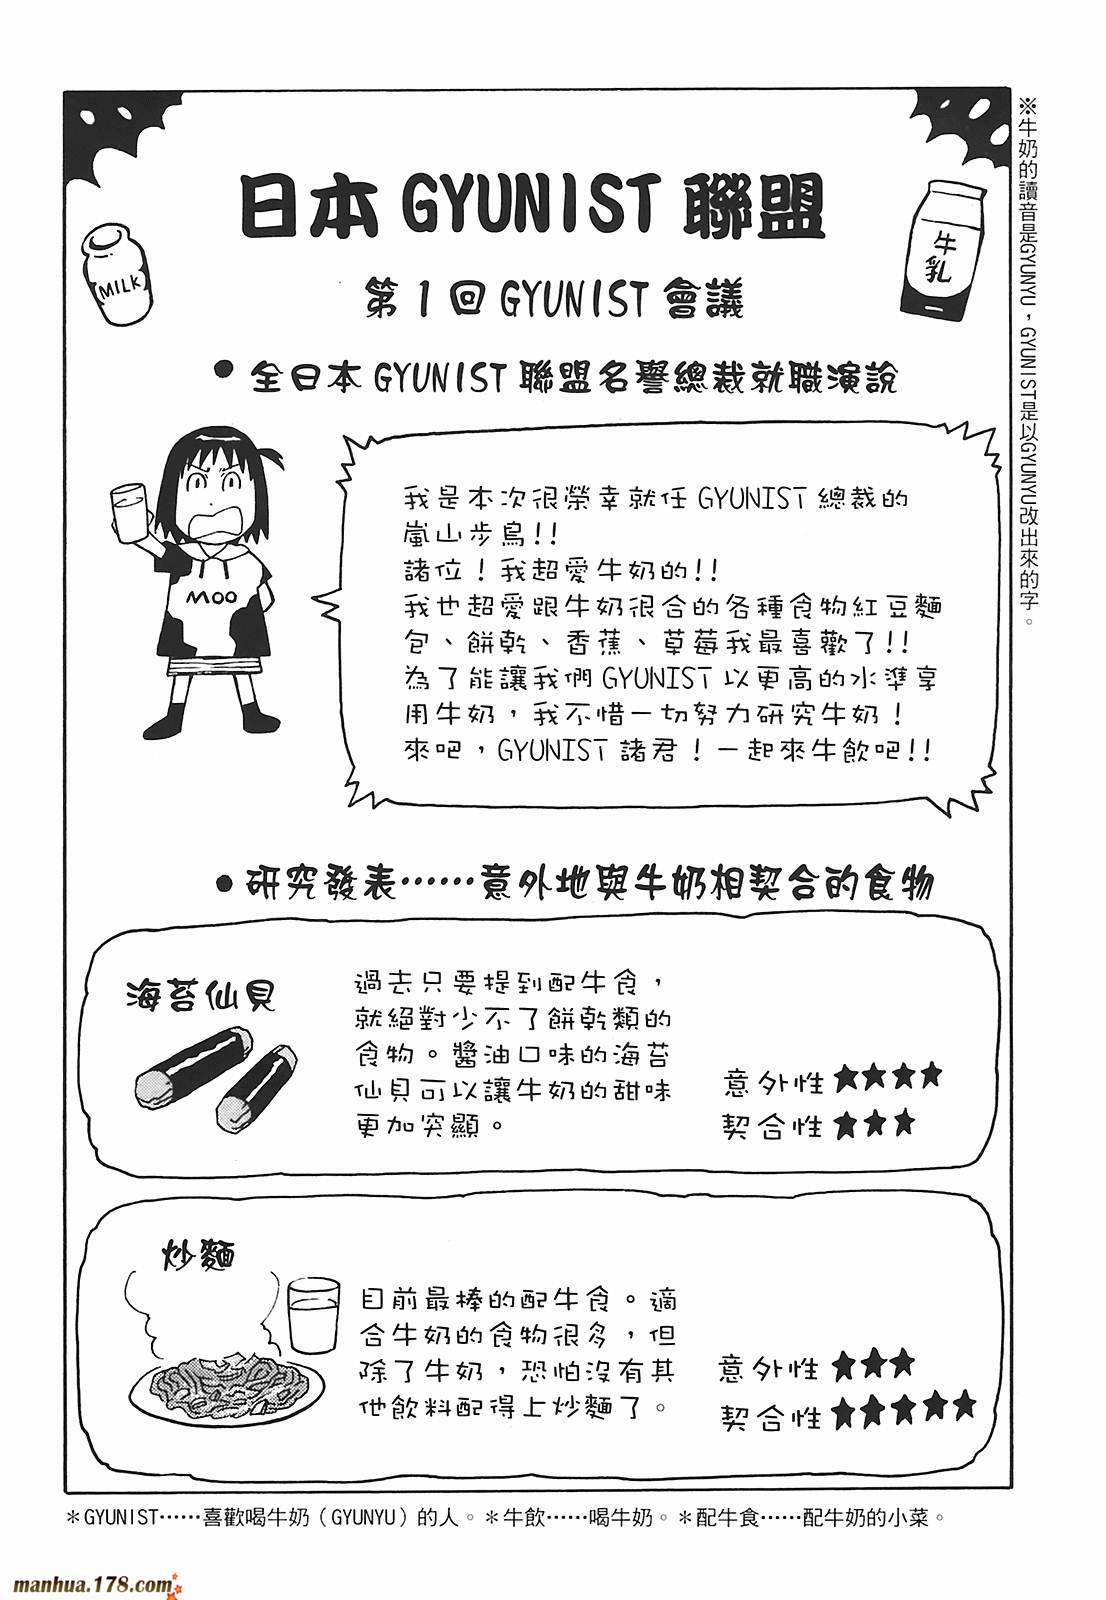 日本 GYUNIST 聯盟
MILK
牛
乳
第1回 GYUNIST 會議
●全日本 GYUNIST 聯盟名譽總裁就職演說
MOO
我是本次很榮幸就任 GYUNIST 總裁的
嵐山步鳥!!
諸位!我超愛牛奶的!!
我也超愛跟牛奶很合的各種食物紅豆麵
包、餅乾、香蕉、草莓我最喜歡了!!
為了能讓我們 GYUNIST 以更高的水準享
用牛奶,我不惜一切努力研究牛奶!
來吧,GYUNIST 諸君!一起來牛飲吧!!
※牛奶的讀音是GYUNYU,GYUNIST是以GYUNYU改出來的字。
●研究發表……意外地與牛奶相契合的食物
海苔仙貝
過去只要提到配牛食,
就絕對少不了餅乾類的
食物。醬油口味的海苔
仙貝可以讓牛奶的甜味
更加突顯。
意外性★★★★
契合性★★★
炒麵
目前最棒的配牛食。適
合牛奶的食物很多,但
除了牛奶,恐怕沒有其
他飲料配得上炒麵了。
意外性★★★
契合性★★★★★
＊GYUNIST……喜歡喝牛奶(GYUNYU)的人。＊牛飲……喝牛奶。＊配牛食……配牛奶的小菜。
manhua.178.com